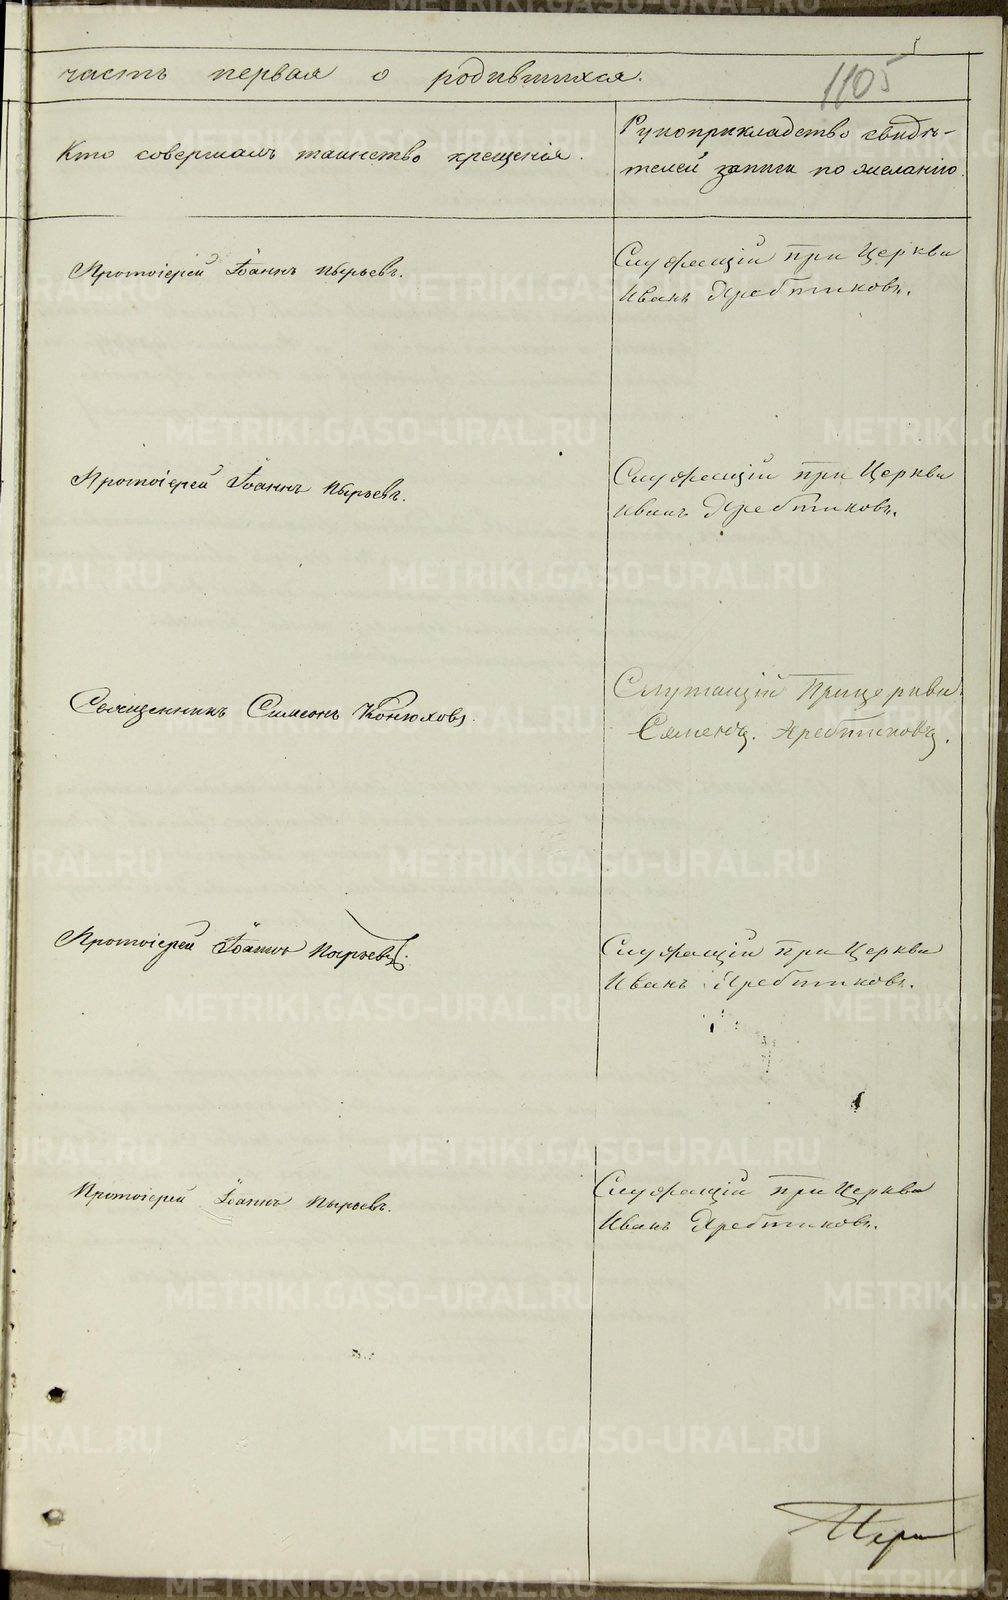 часть первая о родившихся.
1105
Кто совершалъ таинство крещенія.
Рукоприкладство свидѣ-
телей записи по желанію.
Протоіерей Іоаннъ Пырьевъ.
Служащій при Церкви
Иванъ Яребтиковъ.
Протоіерей Іоаннъ Пырьевъ.
Служащій при Церкви
Иванъ Яребтиковъ.
Священникъ Симеонъ Конюховъ.
Слутащій Прицеркви
Семенъ. Яребтиковъ.
Протоіерей Іоаннъ Пырьевъ.
Служащій при Церкви
Иванъ Яребтиковъ.
Протоіерей Іоаннъ Пырьевъ.
Служащій при Церкви
Иванъ Яребтиковъ.
METRIKI.GASO-URAL.RU